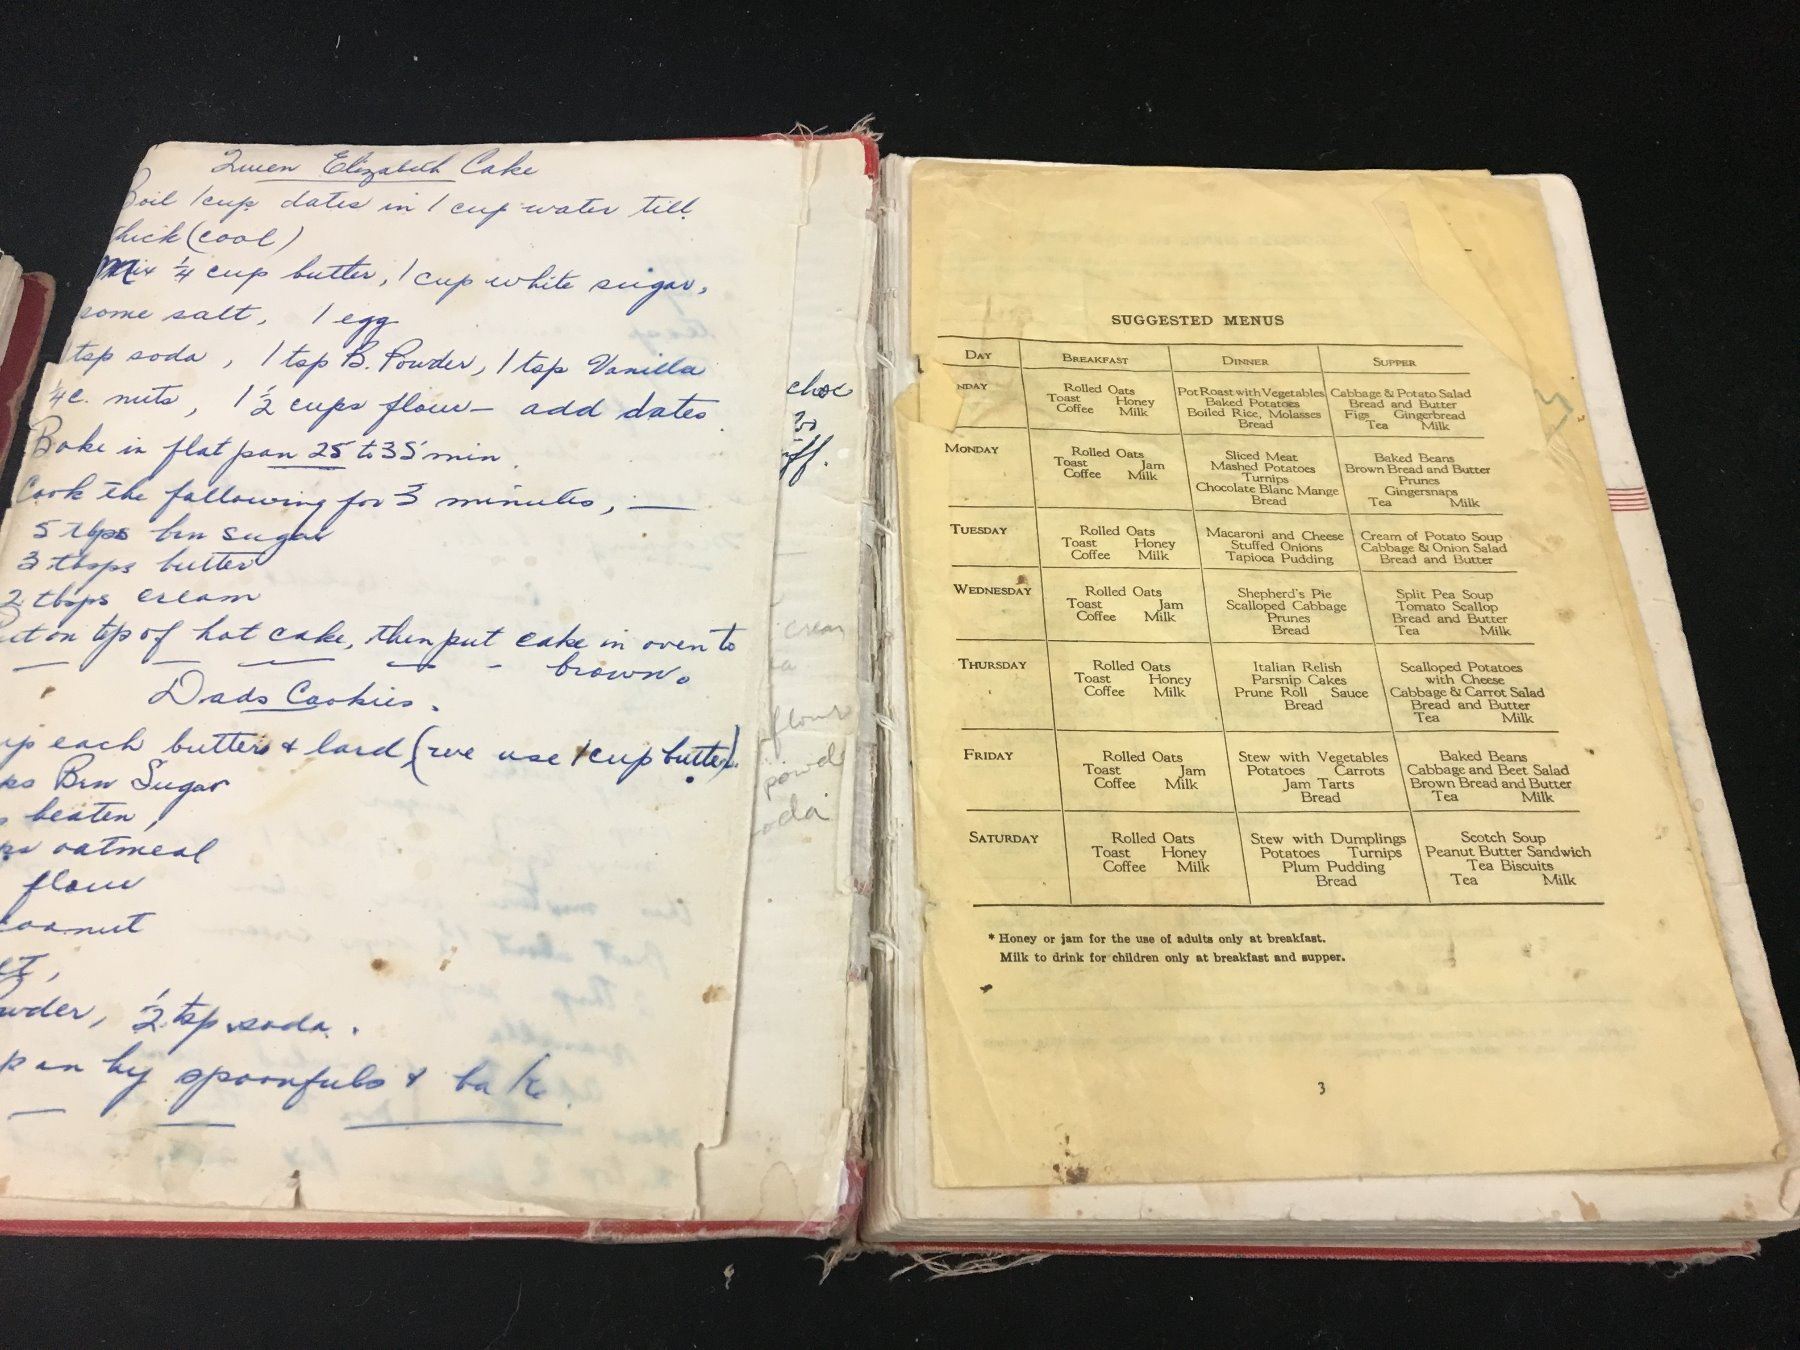 Queen Elizabeth Cake
Boil 1 cup dates in 1 cup water till
thick (cool)
Mix 1/4 cup butter, 1 cup white sugar,
some salt, 1 egg
tsp soda, 1 tsp B. Powder, 1 tsp Vanilla
1/4 c. nuts, 1 1/2 cups flour - add dates.
Bake in flat pan 25 to 35 min.
Cook the following for 3 minutes, —
5 tbps brn sugar
3 tbsps butter
2 tbsps cream
Put on top of hot cake, then put cake in oven to
brown.
Dads Cookies.
up each butter & lard, (we use 1 cup butter).
ps Brn Sugar
s beaten,
ps oatmeal
flour
coanut
lt,
owder, 1/2 tsp soda.
pan by spoonfuls & bake
choc
ff.
cream
flour
powd
oda
SUGGESTED MENUS
DAY BREAKFAST DINNER SUPPER
NDAY
Rolled Oats
Toast Honey
Coffee Milk
Pot Roast with Vegetables
Baked Potatoes
Boiled Rice, Molasses
Bread
Cabbage & Potato Salad
Bread and Butter
Figs Gingerbread
Tea Milk
MONDAY
Rolled Oats
Toast Jam
Coffee Milk
Sliced Meat
Mashed Potatoes
Turnips
Chocolate Blanc Mange
Bread
Baked Beans
Brown Bread and Butter
Prunes
Gingersnaps
Tea Milk
TUESDAY
Rolled Oats
Toast Honey
Coffee Milk
Macaroni and Cheese
Stuffed Onions
Tapioca Pudding
Cream of Potato Soup
Cabbage & Onion Salad
Bread and Butter
WEDNESDAY
Rolled Oats
Toast Jam
Coffee Milk
Shepherd's Pie
Scalloped Cabbage
Prunes
Bread
Split Pea Soup
Tomato Scallop
Bread and Butter
Tea Milk
THURSDAY
Rolled Oats
Toast Honey
Coffee Milk
Italian Relish
Parsnip Cakes
Prune Roll Sauce
Bread
Scalloped Potatoes
with Cheese
Cabbage & Carrot Salad
Bread and Butter
Tea Milk
FRIDAY
Rolled Oats
Toast Jam
Coffee Milk
Stew with Vegetables
Potatoes Carrots
Jam Tarts
Bread
Baked Beans
Cabbage and Beet Salad
Brown Bread and Butter
Tea Milk
SATURDAY
Rolled Oats
Toast Honey
Coffee Milk
Stew with Dumplings
Potatoes Turnips
Plum Pudding
Bread
Scotch Soup
Peanut Butter Sandwich
Tea Biscuits
Tea Milk
* Honey or jam for the use of adults only at breakfast.
Milk to drink for children only at breakfast and supper.
3